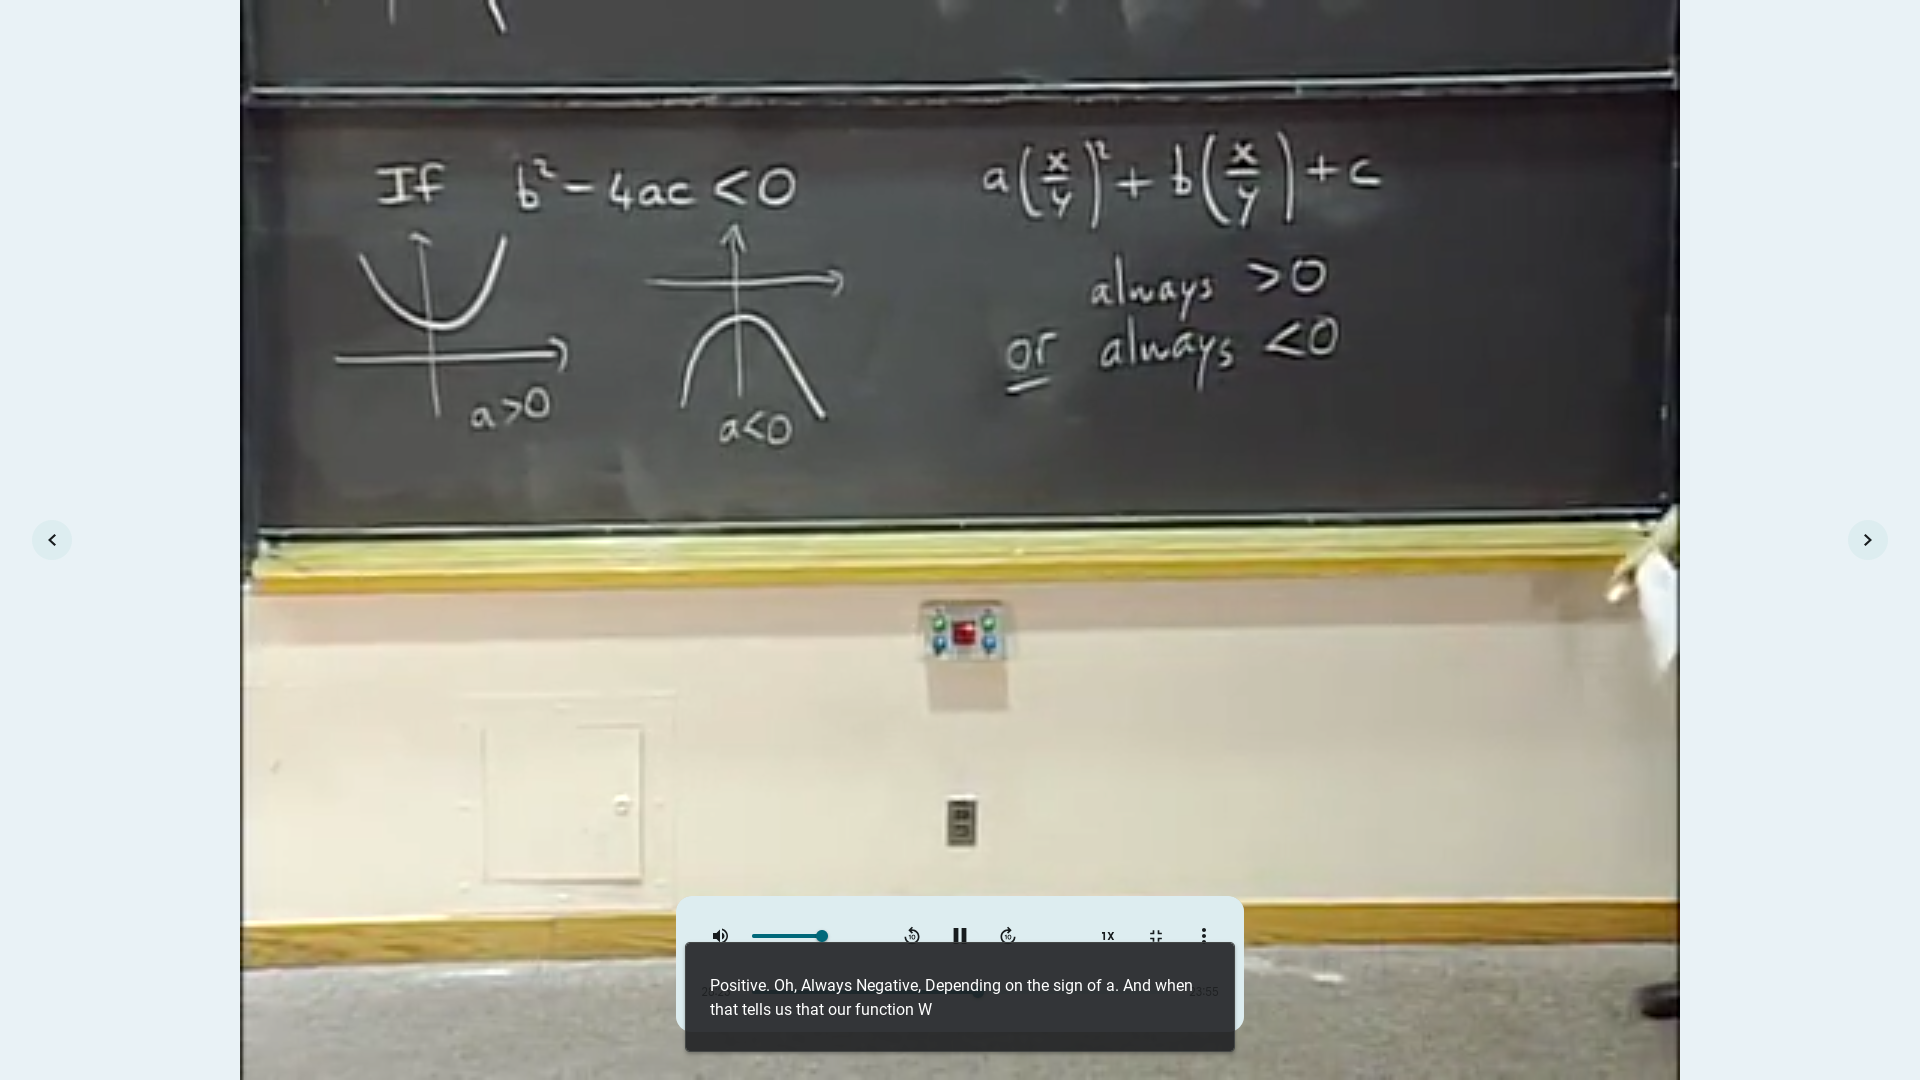 If b² - 4ac < 0
a(x/y)² + b(x/y) + c
always > 0
or always < 0
a > 0
a < 0
1X
Positive. Oh, Always Negative, Depending on the sign of a. And when
that tells us that our function W